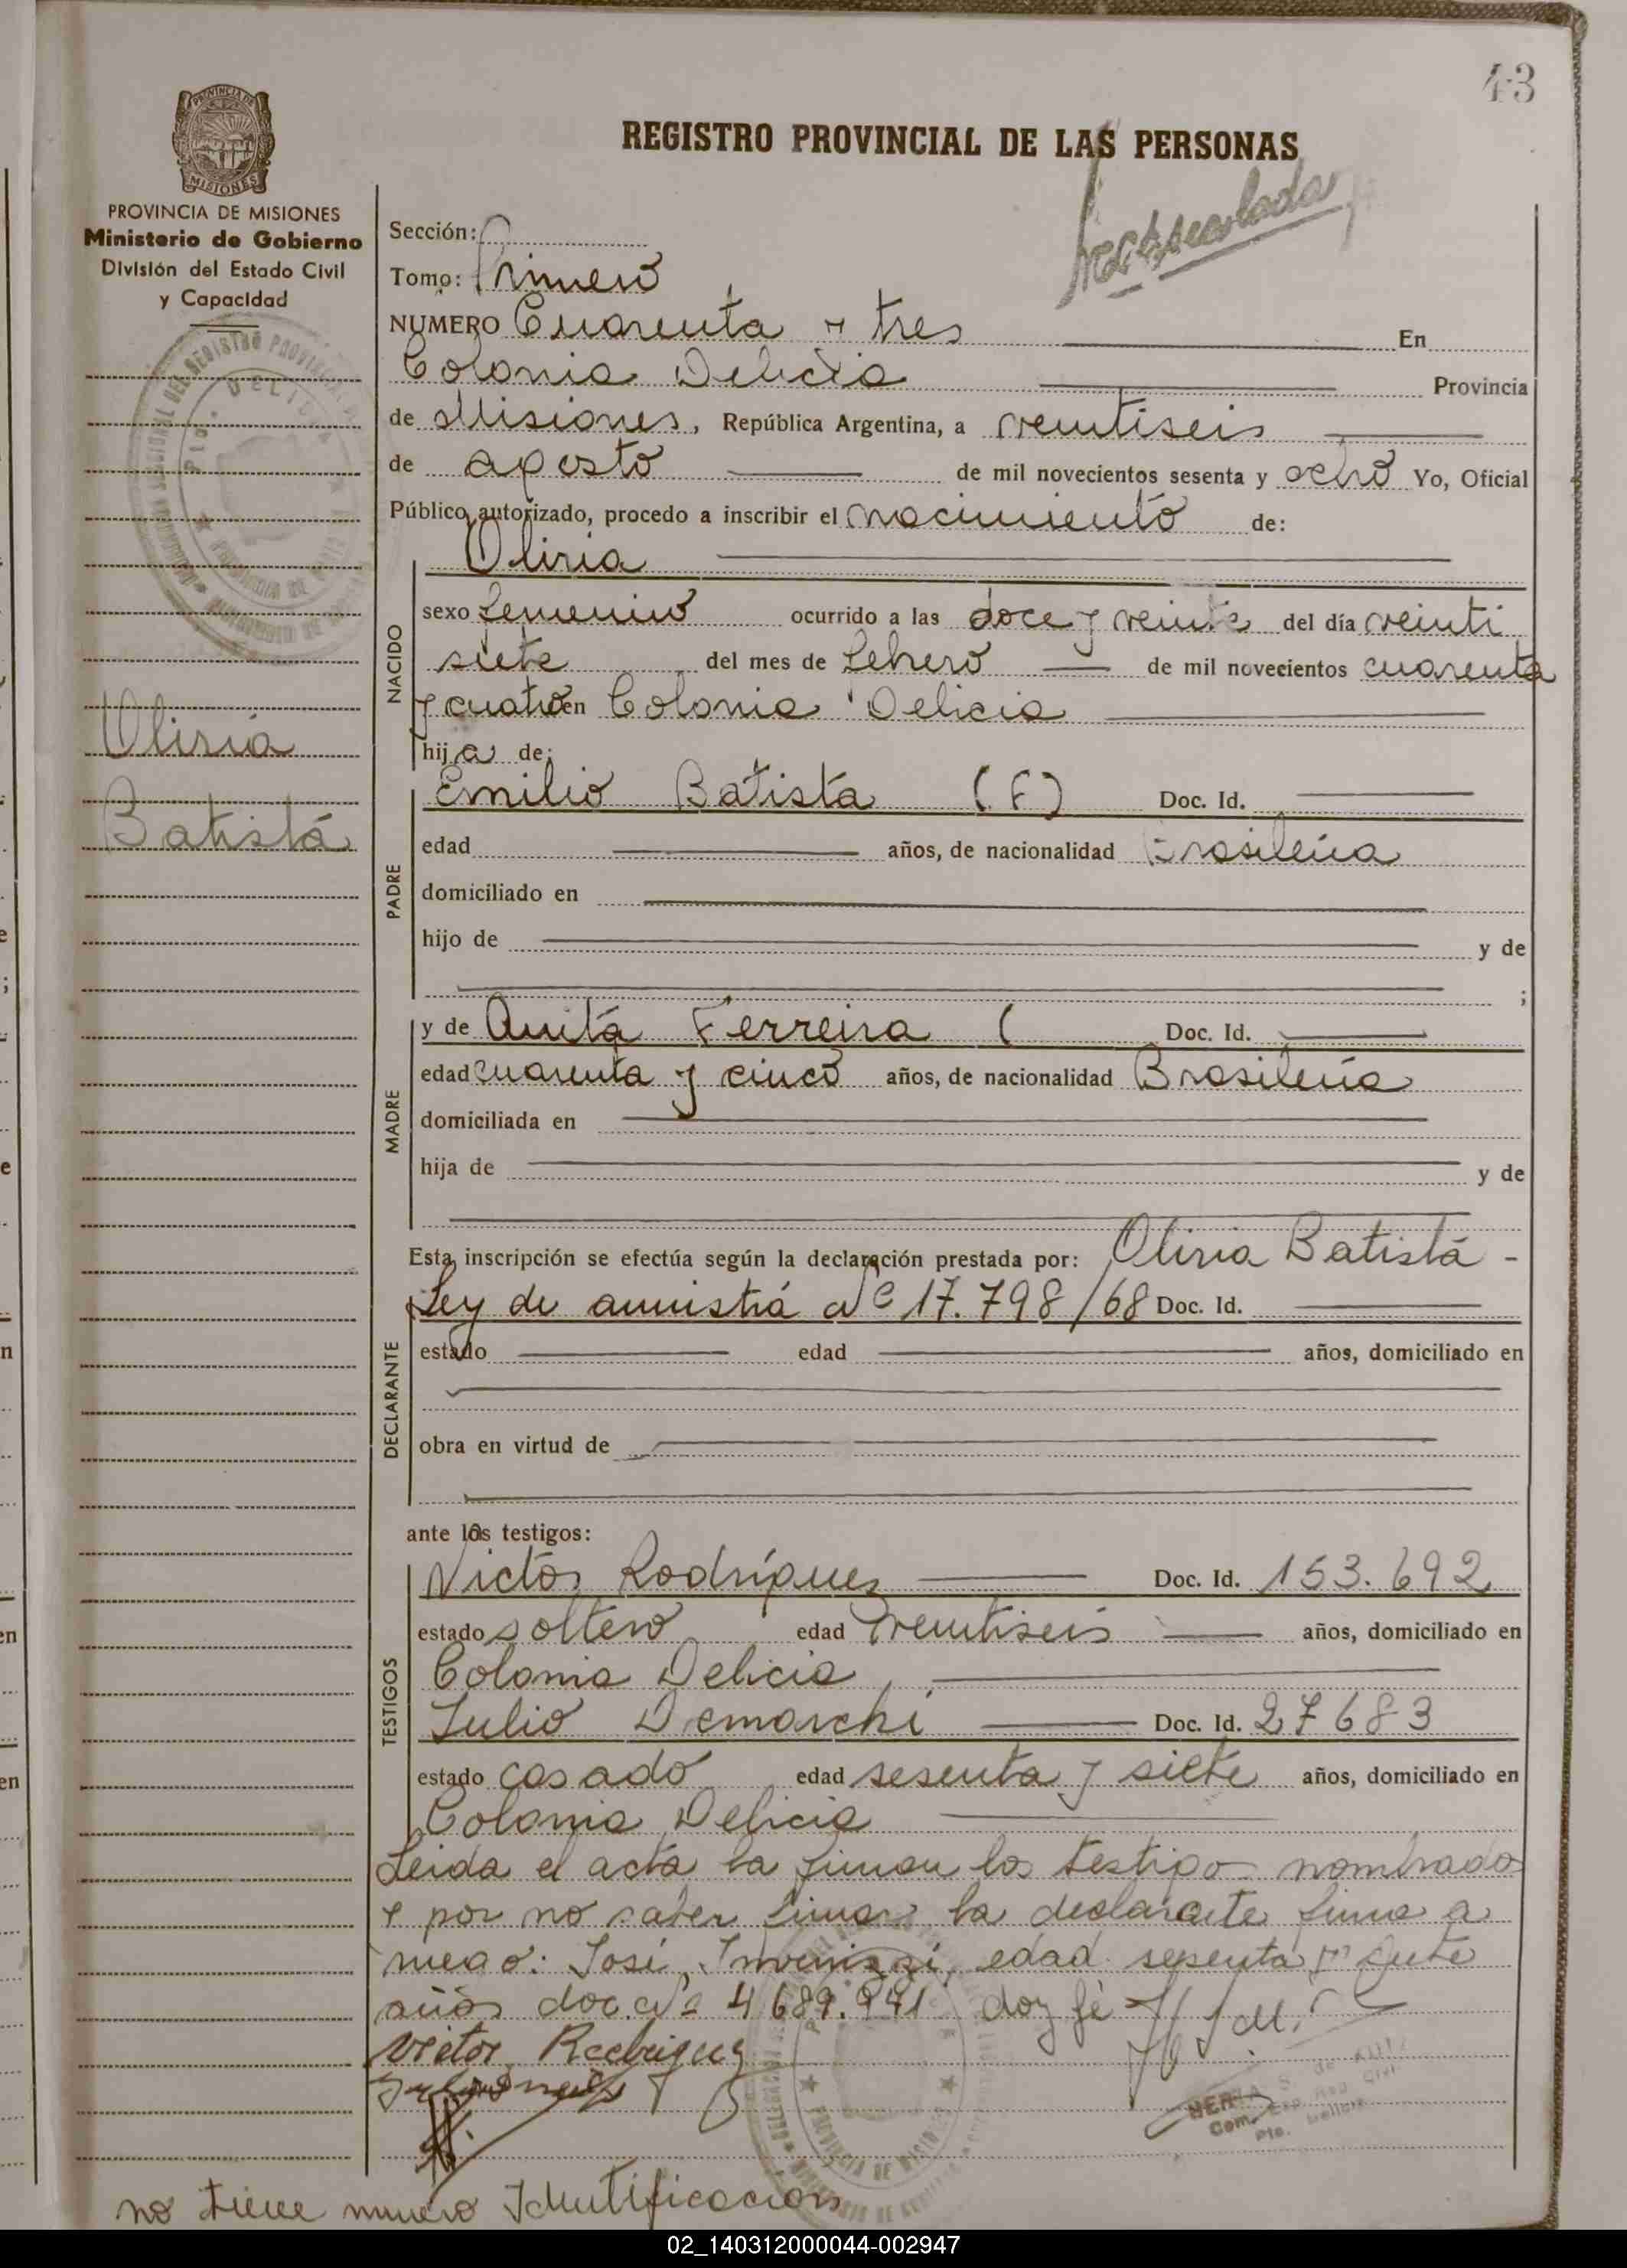 43
REGISTRO PROVINCIAL DE LAS PERSONAS
PROVINCIA DE
MISIONES
PROVINCIA DE MISIONES
Ministerio de Gobierno
División del Estado Civil
y Capacidad
Sección:
Tomo: Primero
NUMERO Cuarenta y tres En
Colonia Delicia Provincia
de Misiones, República Argentina, a veintiseis
de agosto de mil novecientos sesenta y ocho Yo, Oficial
Público autorizado, procedo a inscribir el nacimiento de:
Oliria
NACIDO
sexo femenino ocurrido a las doce y veinte del día veinti
siete del mes de febrero de mil novecientos cuarenta
y cuatro en Colonia Delicia
hija de:
Oliria
Batista
PADRE
Emilio Batista (F) Doc. Id.
edad años, de nacionalidad Brasileña
domiciliado en
hijo de y de
;
MADRE
y de Anita Ferreira ( Doc. Id.
edad cuarenta y cinco años, de nacionalidad Brasileña
domiciliada en
hija de y de
Esta inscripción se efectúa según la declaración prestada por: Oliria Batista -
DECLARANTE
Ley de amnistia Nº 17.798/68 Doc. Id.
estado edad años, domiciliado en
obra en virtud de
ante los testigos:
TESTIGOS
Victor Rodrígues Doc. Id. 153.692
estado soltero edad veintiseis años, domiciliado en
Colonia Delicia
Julio Demarchi Doc. Id. 27683
estado casado edad sesenta y siete años, domiciliado en
Colonia Delicia
Leida el acta la firman los testigos nombrados
y por no saber firmar la declarante firma a
ruego: José Invernizzi, edad sesenta y siete
años doc. Nº 4689.941 doy fé
Victor Rodrigues
no tiene numero Identificacion
02_140312000044-002947